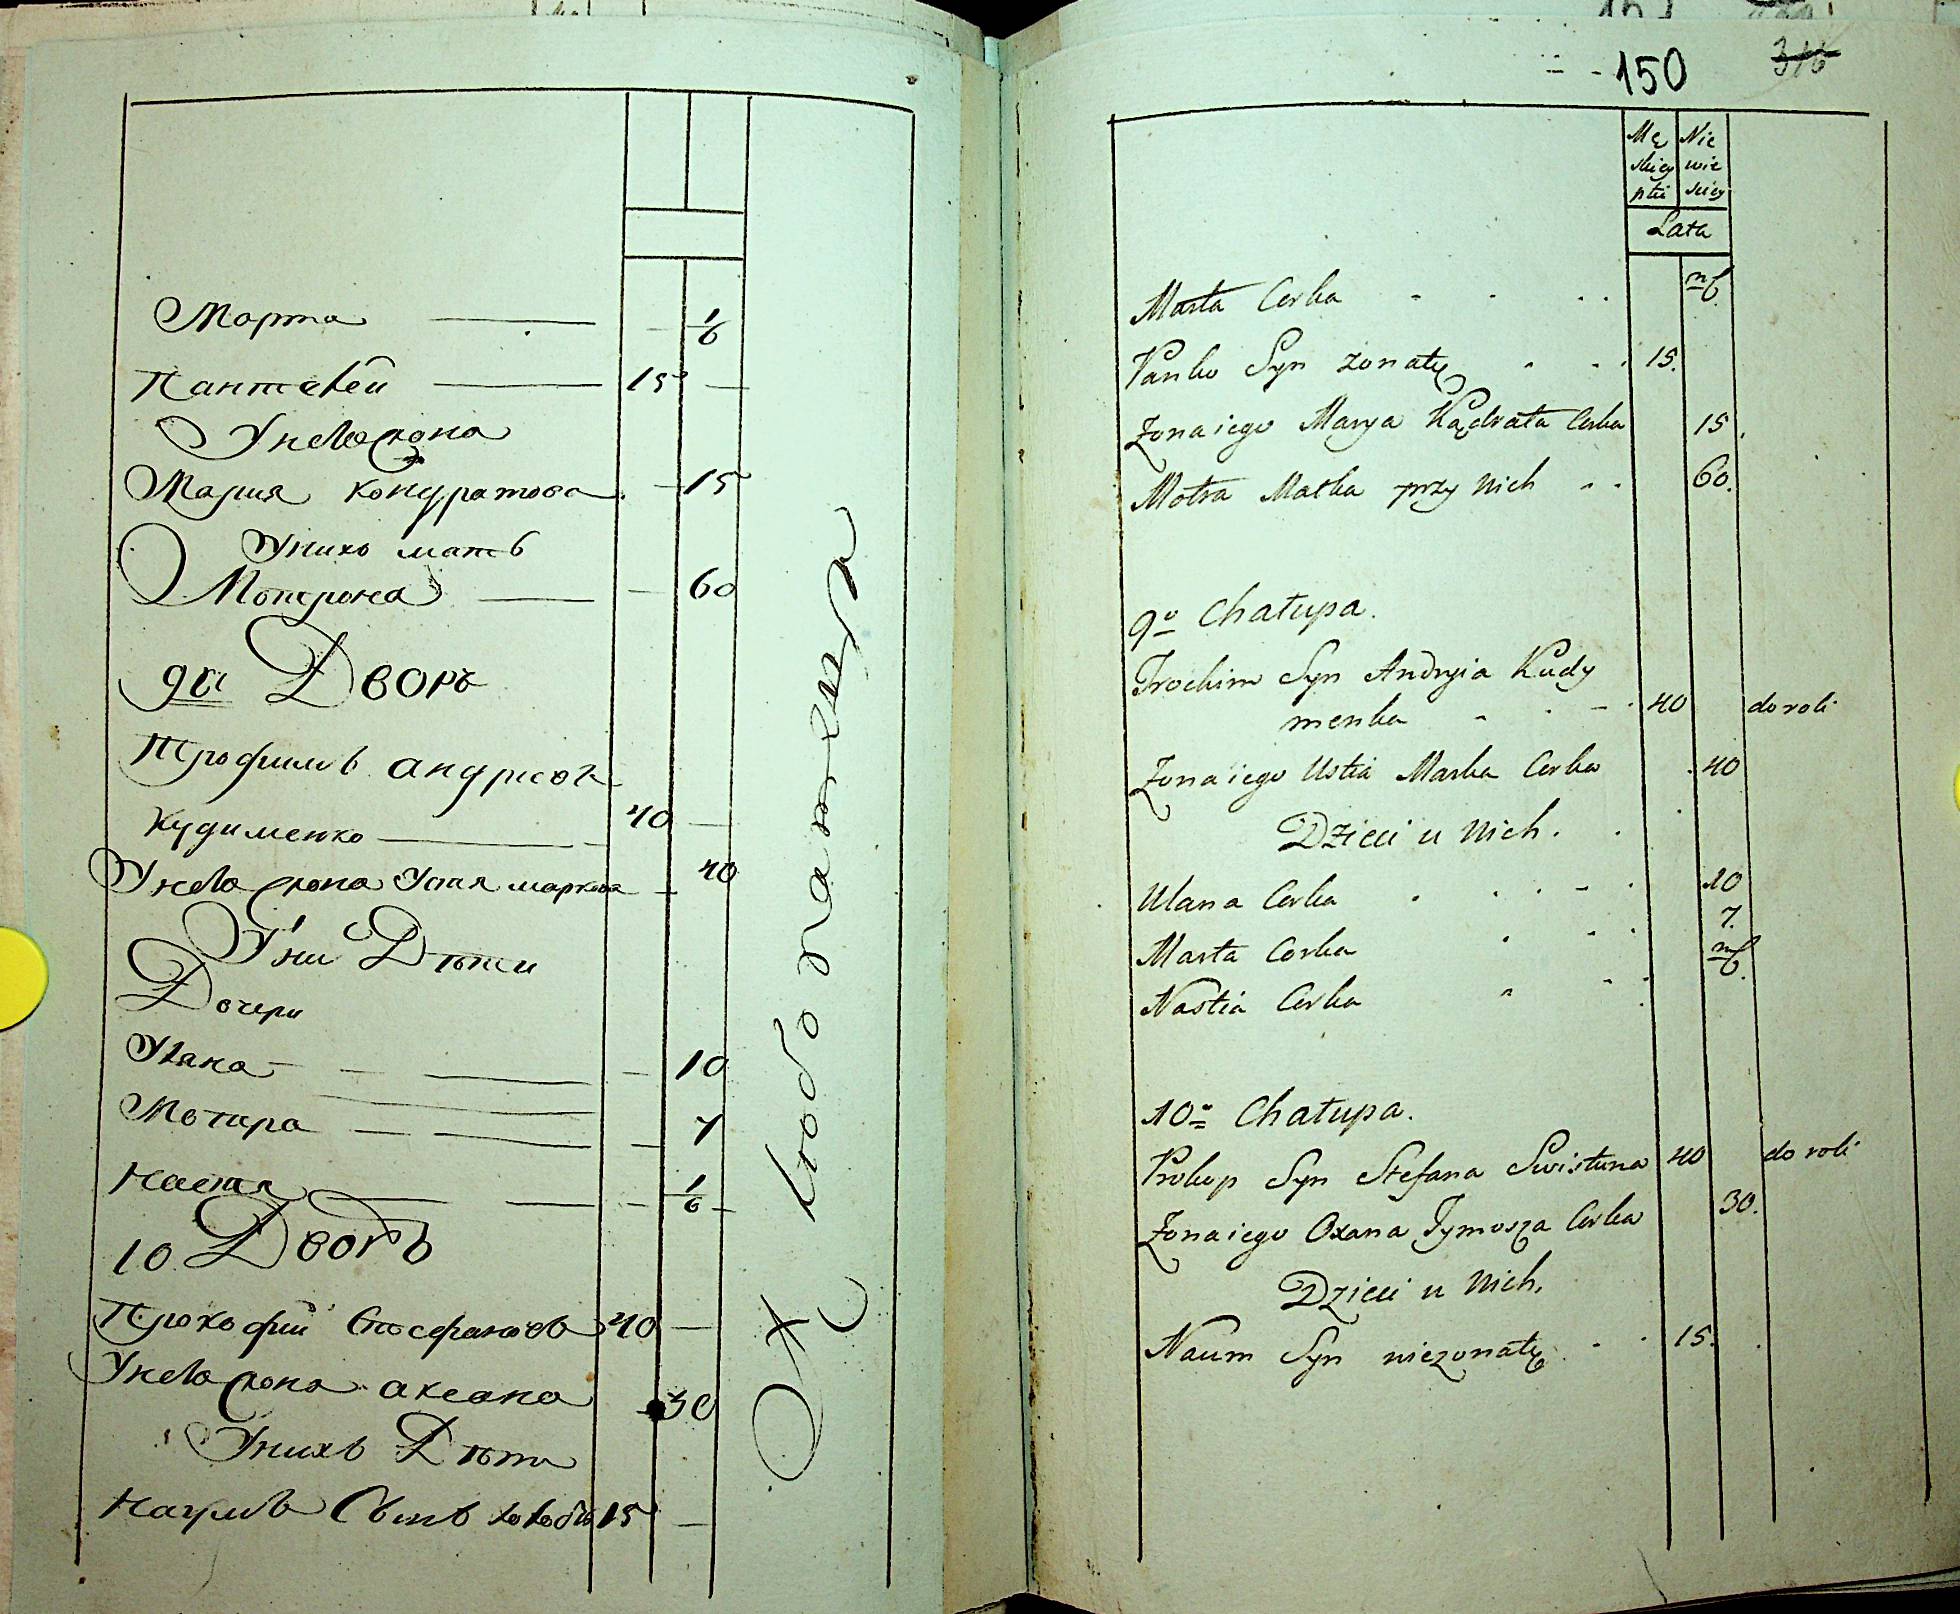 Марта — 1/6
Пантелей 15 —
Унево жона
Мария кондратова — 15
Унихъ мать
Мотрона — 60
9й Дворъ
Трофимъ андреевъ
Кудименко 40 —
Унево жона Устя маркова — 40
Уни Дѣти
Дочери
Улана — 10
Мотара — 7
Настя — 1/6
10 Дворъ
Прокофий Стефановъ 40 —
Унево жона аксана — 30
Унихъ Дѣти
Наумъ Сынъ холостъ 15 —
150
316
Mę Nie
skiey wie
płci sciey
Lata
Marta Corka nb.
Panko Syn żonaty 15.
Żona iego Marya Kądrata Corka 15.
Motra Matka przy nich 60.
9o Chałupa.
Trochim Syn Andryia Kudy
menka 40 do roli
Żona iego Ustia Marka Corka 40
Dzieci u nich.
Ulana Corka 10
Marta Corka 7.
Nastia Corka nb.
10o Chałupa.
Prokop Syn Stefana Swistuna 40 do roli
Żona iego Oxana Tymosza Corka 30.
Dzieci u nich.
Naum Syn nieżonaty 15.